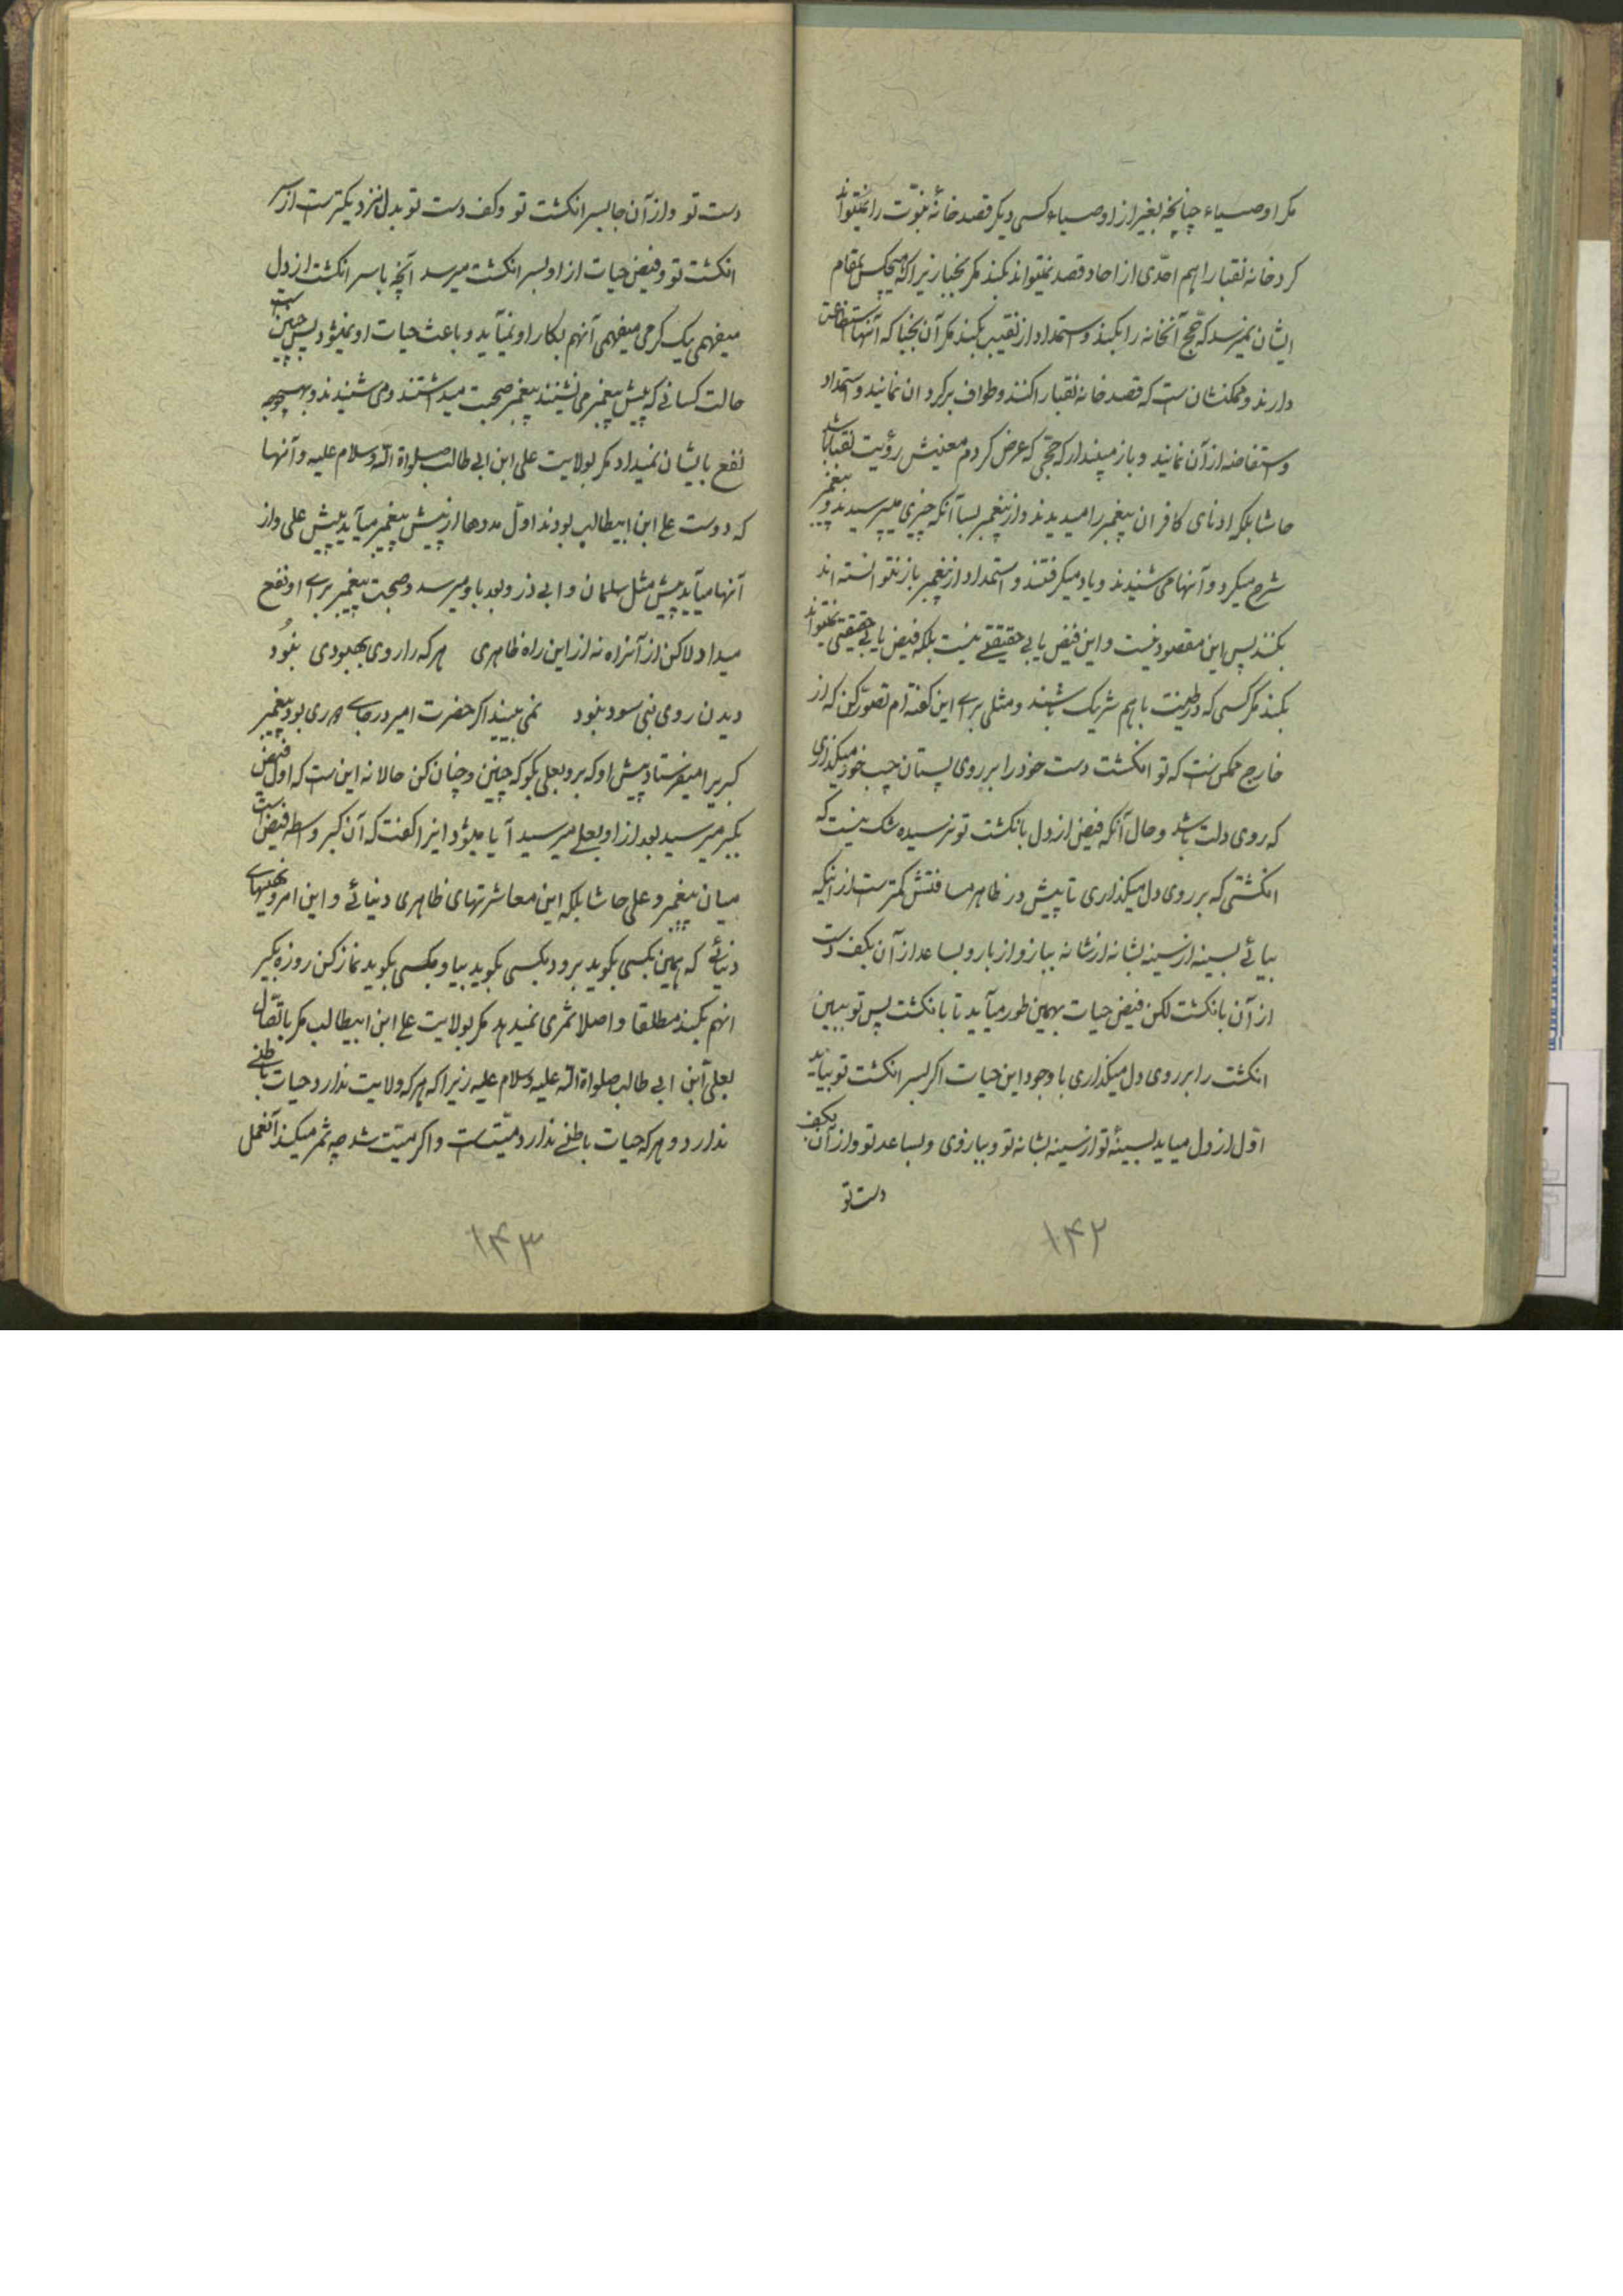 مکر اوصیاء چنانچه بغیر از اوصیاء کسی دیکر قصد خانهٔ نبوّت را نمیتواند
کرد خانه نقبا را هم احدی از احاد قصد نمیتواند بکند مکر نجبا زیرا که هیچکس بمقام
ایشان نمیرسد که حج آنخانه را بکند و استمداد از نقیب بکند مکر آن نجبا که آنها استطاعت
دارند و ممکنشان ست که قصد خانه نقبا را کنند و طواف بر کرد ان نمایند و استمداد
و استفاضه از آن نمایند و باز مپندار که حجّی که عرض کردم معنیش رؤیت نقبا باشد
حاشا بلکه ادنای کافران پیغمبر را میدیدند و از پیغمبر بسا آنکه چیزی میپرسیدند و پیغمبر
شرح میکرد و آنها می شنیدند و یاد میکرفتند و استمداد از پیغمبر باز نتوانسته اند
بکنند پس این مقصود نیست و این فیض یابی حقیقتی نیست بلکه فیض یابی حقیقتی نمیتواند
بکند مکر کسی که در طینت با هم شریک باشند و مثلی برای این کفته ام تصوّر کن که از
خارج ممکن ست که تو انکشت دست خود را بر روی پستان چپ خود میکذاری
که روی دلت باشد و حال آنکه فیض از دل بانکشت تو نرسیده شک نیست که
انکشتی که بر روی دل میکذاری تا پیش در ظاهر مسافتش کمتر ست از اینکه
بیائی بسینه از سینه بشانه از شانه ببازو از بازو بساعد از آن بکف دست
از آن بانکشت لکن فیض حیات بهمین طور میآید تا بانکشت پس تو ببین
انکشت را بر روی دل میکذاری با وجود این حیات اکر بسر انکشت تو بیاید
اوّل از دل میاید بسینهٔ تو از سینه بشانه تو و ببازوی و بساعد تو و از آن بکف
دست تو
۱۴۲
دست تو و از آن جا بسر انکشت تو و کف دست تو بدل نزدیکتر ست از سر
انکشت تو و فیض حیات از او بسر انکشت میرسد آنچه با سر انکشت از دل
میفهمی یک کرمی میفهمی آنهم بکار او نمیآید و باعث حیات او نمیشود پس چنین است
حالت کسانی که پیش پیغمبر می نشینند پیغمبر صحبت میداشتند و می شنیدند و بهیچوجه
نفع بایشان نمیداد مکر بولایت علی ابن ابی طالب صلواة الله و سلام علیه و آنها
که دوست علی ابن ابیطالب بودند اوّل مددها از پیش پیغمبر میآید پیش علی و از
آنها میآید پیش مثل سلمان و ابی ذر و بعد باو میرسد و صحبت پیغمبر برای او نفع
میداد لاکن از آنراه نه از این راه ظاهری هر که را روی بهبودی نبود
دیدن روی نبی سود نبود نمی بینید اکر حضرت امیر در جای دوری بود پیغمبر
کبر را میفرستاد پیش او که برو بعلی بکو که چنین و چنان کن حالا نه این ست که اول فیض
بکبر میرسید بعد از او بعلی میرسید آیا میشود اینرا کفت که آن کبر واسطه فیض است
میان پیغمبر و علی حاشا بلکه این معاشرتهای ظاهری دنیائی و این امر و نهیهای
دنیائی که همین بکسی بکوید برو و بکسی بکوید بیا و بکسی بکوید نماز کن روزه بکیر
انهم بکند مطلقا و اصلا ثمری نمیدهد مکر بولایت علی ابن ابیطالب مکر باتّصال
بعلی ابن ابی طالب صلواة الله علیه و سلام علیه زیرا که هر که ولایت ندارد حیات باطنی
ندارد و هر که حیات باطنی ندارد میّت ست و اکر میّت شد چه ثمر میکند آنعمل
۱۴۳